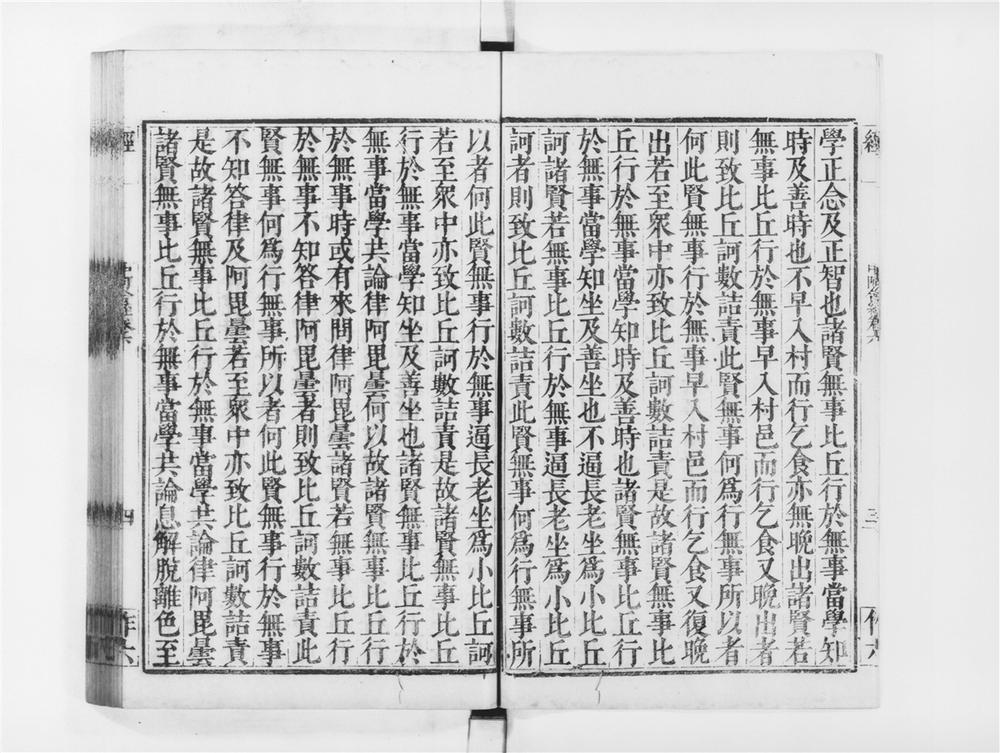 學正念及正智也諸賢無事比丘行於無事當學知
時及善時也不早入村而行乞食亦無晚出諸賢若
無事比丘行於無事早入村邑而行乞食又晚出者
則致比丘訶數詰責此賢無事何爲行無事所以者
何此賢無事行於無事早入村邑而行乞食又復晚
出若至衆中亦致比丘訶數詰責是故諸賢無事比
丘行於無事當學知時及善時也諸賢無事比丘行
於無事當學知坐及善坐也不逼長老坐爲小比丘
訶諸賢若無事比丘行於無事逼長老坐爲小比丘
訶者則致比丘訶數詰責此賢無事何爲行無事所
以者何此賢無事行於無事逼長老坐爲小比丘訶
若至衆中亦致比丘訶數詰責是故諸賢無事比丘
行於無事當學知坐及善坐也諸賢無事比丘行於
無事當學共論律阿毘曇何以故諸賢無事比丘行
於無事時或有來問律阿毘曇諸賢若無事比丘行
於無事不知答律阿毘曇者則致比丘訶數詰責此
賢無事何爲行無事所以者何此賢無事行於無事
不知答律及阿毘曇若至衆中亦致比丘訶數詰責
是故諸賢無事比丘行於無事當學共論律阿毘曇
諸賢無事比丘行於無事當學共論息解脫離色至
經
四